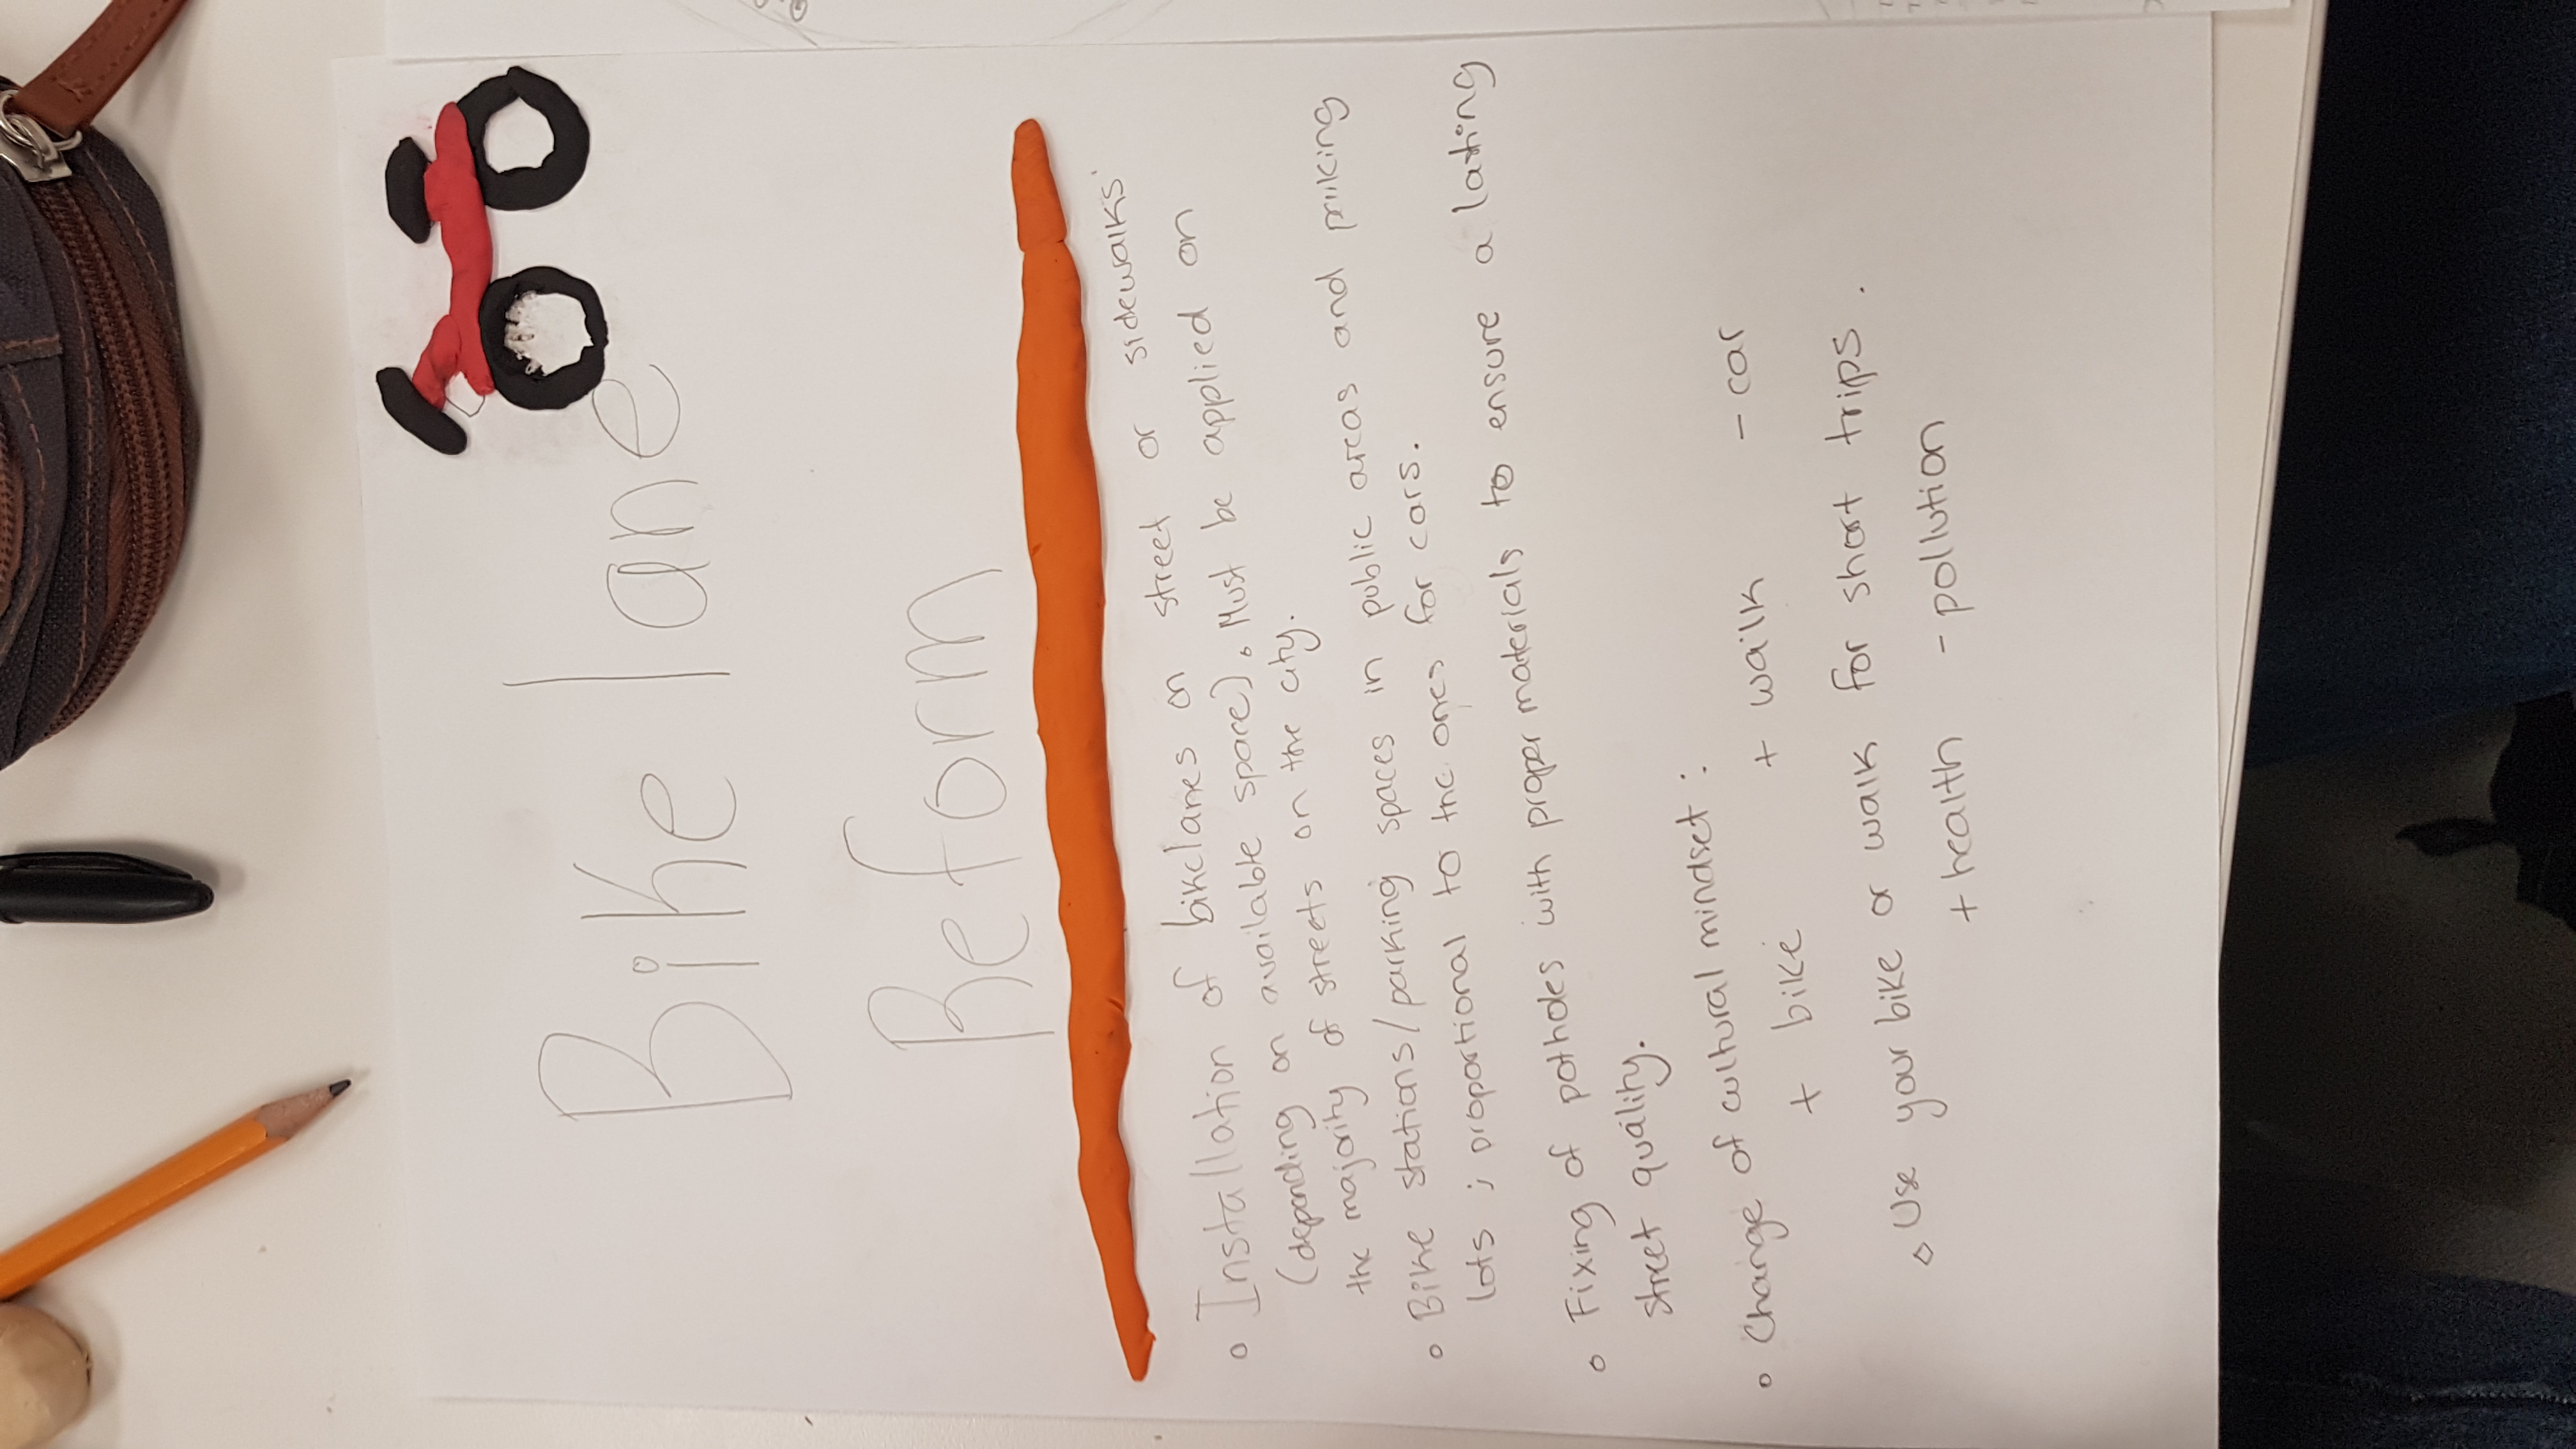 Bike lane
Reform
Installation of bikelanes on street or sidewalks
(depending on available space). Must be applied on
the majority of streets on the city.
Bike stations/parking spaces in public areas and parking
lots ; proportional to the ones for cars.
Fixing of potholes with proper materials to ensure a lasting
street quality.
Change of cultural mindset :
+ bike + walk - car
Use your bike or walk for short trips.
+ health - pollution